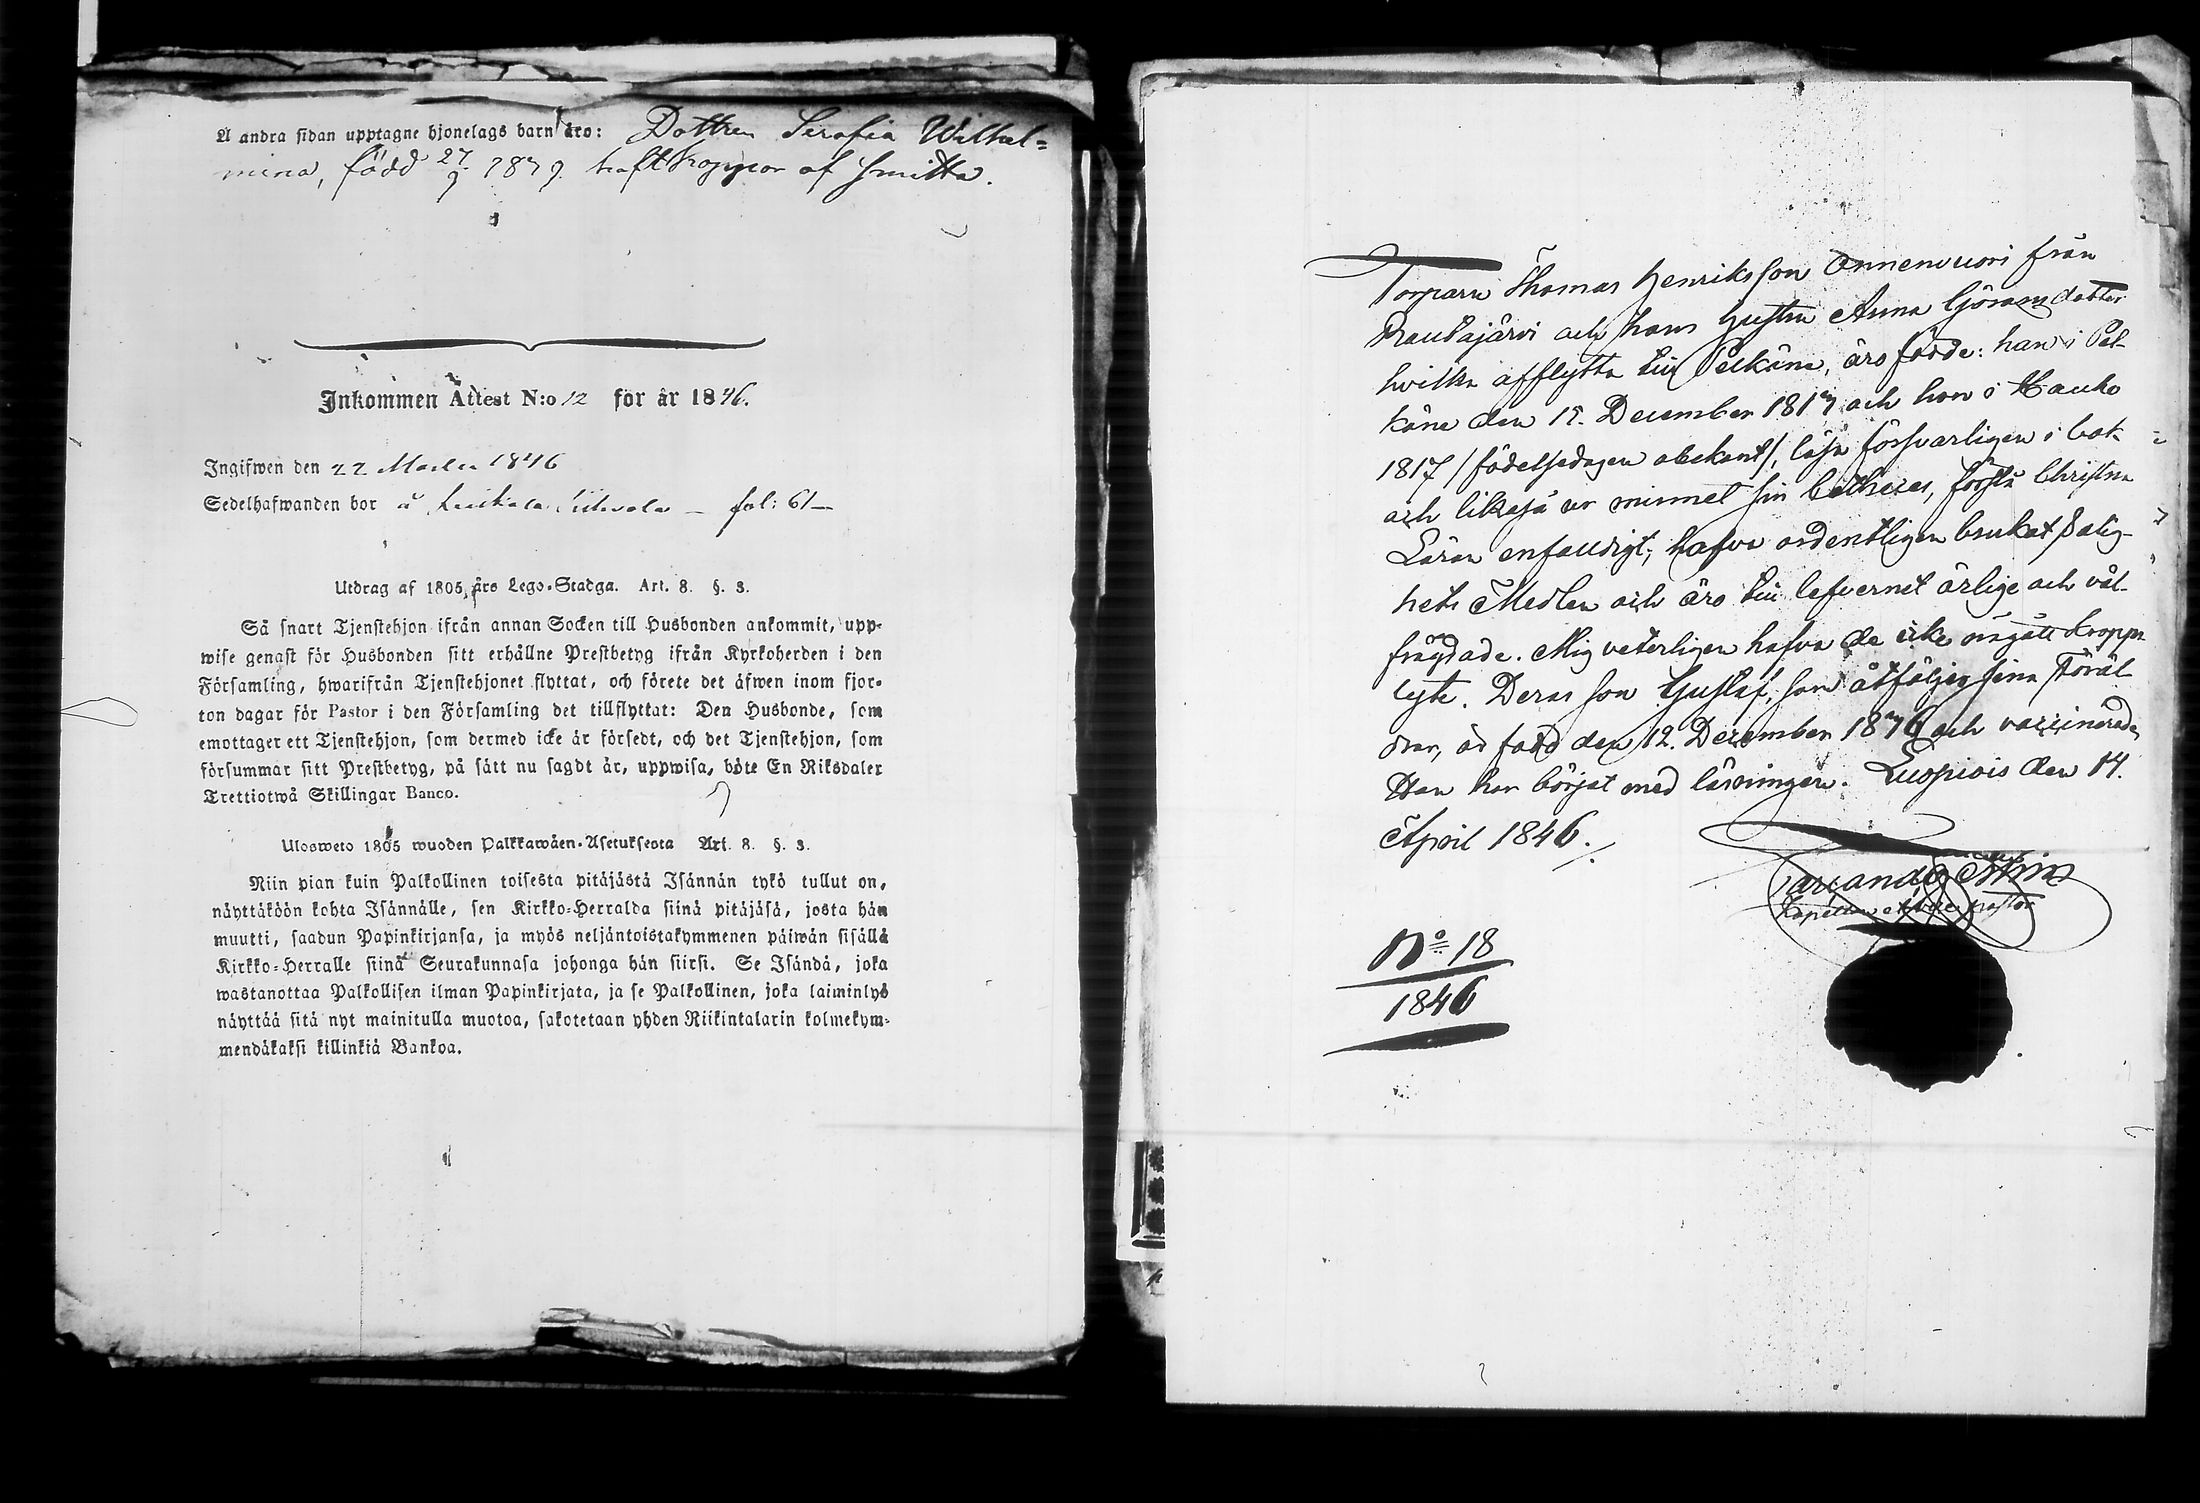 Å andra sidan upptagne hjonelags barn äro: Dottren Serafia Wilhel=
mina, född 27/9 1839. haft koppor af smitta.
Inkommen Attest N:o 12 för år 1846.
Ingifwen den 22 Martii 1846
Sedelhafwanden bor å fol: 61
Utdrag af 1805 års Lego-Stadga. Art. 8. §. 3.
Så snart Tjenstehjon ifrån annan Socken till Husbonden ankommit, upp-
wise genast för Husbonden sitt erhållne Prestbetyg ifrån Kyrkoherden i den
Församling, hwarifrån Tjenstehjonet flyttat, och förete det äfwen inom fjor-
ton dagar för Pastor i den Församling det tillflyttat: Den Husbonde, som
emottager ett Tjenstehjon, som dermed icke är försedt, och det Tjenstehjon, som
försummar sitt Prestbetyg, på sätt nu sagdt är, uppwisa, böte En Riksdaler
Trettiotwå Skillingar Banco.
Ulosweto 1805 wuoden Palkkawäen-Asetuksesta Art. 8. §. 3.
Niin pian kuin Palkollinen toisesta pitäjästä Isännän tykö tullut on,
näyttäköön kohta Isännälle, sen Kirkko-Herralda siinä pitäjäsä, josta hän
muutti, saadun Papinkirjansa, ja myös neljäntoistakymmenen päiwän sisällä
Kirkko-Herralle siinä Seurakunnasa johonga hän siirsi. Se Isändä, joka
wastanottaa Palkollisen ilman Papinkirjata, ja se Palkollinen, joka laiminlyö
näyttää sitä nyt mainitulla muotoa, sakotetaan yhden Riikintalarin kolmekym-
mendäkaksi killinkiä Bankoa.
Torparn Thomas Henriksson Onnenvuori från
Rautajärvi och hans hustru Anna Göransdotter
hvilka afflytta till Pelkäne, äro födde: han i Pel-
käne den 15. December 1817 och hon i Hauho
1817 /födelsedagen obekant/, läsa försvarligen i bok
och likaså ur minnet sin Catheces, förstå Christna
Läran enfaldigt; hafva ordentligen brukat Salig-
hets Medlen och äro till lefvernet ärlige och väl-
frägdade. Mig veterligen hafva de icke ringaste kropps
lyte. Deras son Gustaf, som åtföljer sina föräl-
drar, är född den 12. December 1836 och vaccinerad.
Han har börjat med läsningen. Luopiois den 14.
April 1846.
Kapellan
N:o 18
1846